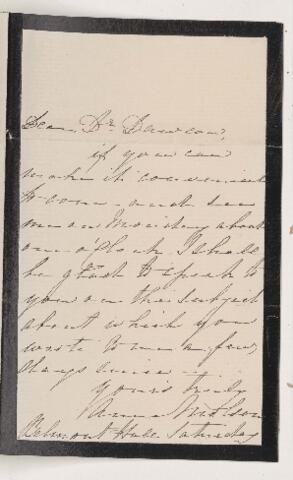 Dear Dr Dawson,
if you can
make it convenient
to come and see
me on Monday about
one o'Clock I shall
be glad to speak to
you on the subject
about which you
wrote to me a few
days since
Yours truly
Anne Molson
Belmont Hall Saturday